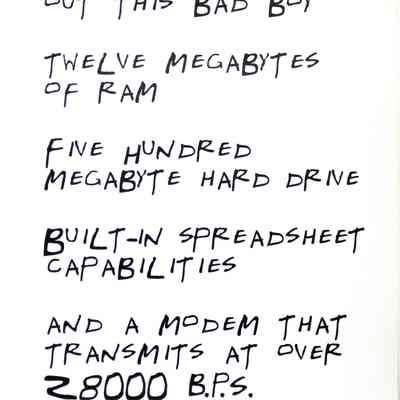 OUT THIS BAD BOY
TWELVE MEGABYTES
OF RAM
FIVE HUNDRED
MEGABYTE HARD DRIVE
BUILT-IN SPREADSHEET
CAPABILITIES
AND A MODEM THAT
TRANSMITS AT OVER
28000 B.P.S.